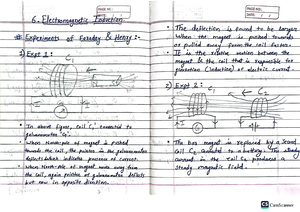 PAGE NO.:
DATE: / /
6. Electromagnetic Induction
# Experiments of Faraday & Henry :-
1) Expt 1 :
C₁
N
G
• In above figure, coil 'C₁' connected to
galvanometer 'G'.
• When North-pole of magnet is pushed
towards the coil, the pointer in the galvanometer
deflects which indicates presence of current.
• When North-pole of magnet moves away from
the coil, again pointer of galvanometer deflects
but now in opposite direction.
PAGE NO.:
DATE: / /
• The deflection is found to be larger
when the magnet is pushed towards
or pulled away from the coil faster.
• It is the relative motion between the
magnet & the coil that is responsible for
generation (induction) of electric current.
2) Expt 2 :
C₁
C₂
G
• The bar magnet is replaced by a second
coil C₂ connected to a battery. The steady
current in the coil C₂ produces a
steady magnetic field.
CS CamScanner